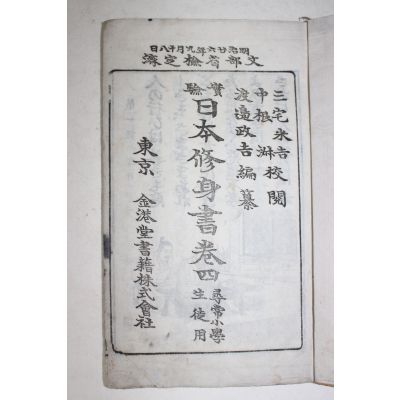 明治廿六年九月十八日
文部省檢定濟
三宅米吉校閲
中根淑
渡邉政吉編纂
實驗
日本修身書卷四
尋常小學
生徒用
東京 金港堂書籍株式會社